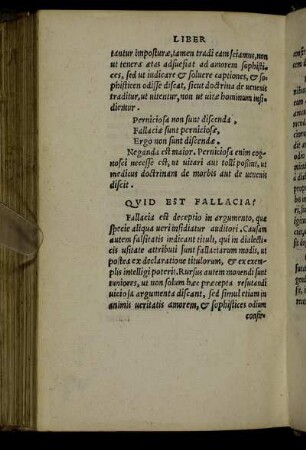 LIBER
tantur imposturæ, tamen tradi eam sciamus, non
ut tenera ætas adsuefiat ad amorem sophisti-
ces, sed ut indicare & soluere captiones, & so-
phisticen odisse discat, sicut doctrina de uenenis
traditur, ut uitentur, non ut uitæ hominum insi-
dientur.
Perniciosa non sunt discenda,
Fallaciæ sunt perniciosæ,
Ergo non sunt discendæ.
Neganda est maior. Perniciosa enim cog-
nosci necesse est, ut uitari aut tolli possint, ut
medicus doctrinam de morbis aut de uenenis
discit.
QVID EST FALLACIA?
Fallacia est deceptio in argumento, quæ
specie aliqua ueri insidiatur auditori. Causam
autem falsitatis indicant tituli, qui in dialecti-
cis usitate attributi sunt fallaciarum modis, ut
postea ex declaratione titulorum, & ex exem-
plis intelligi poterit. Rursus autem mouendi sunt
iuniores, ut non solum hæc præcepta refutandi
uiciosa argumenta discant, sed simul etiam in
animis ueritatis amorem, & sophistices odium
confir-